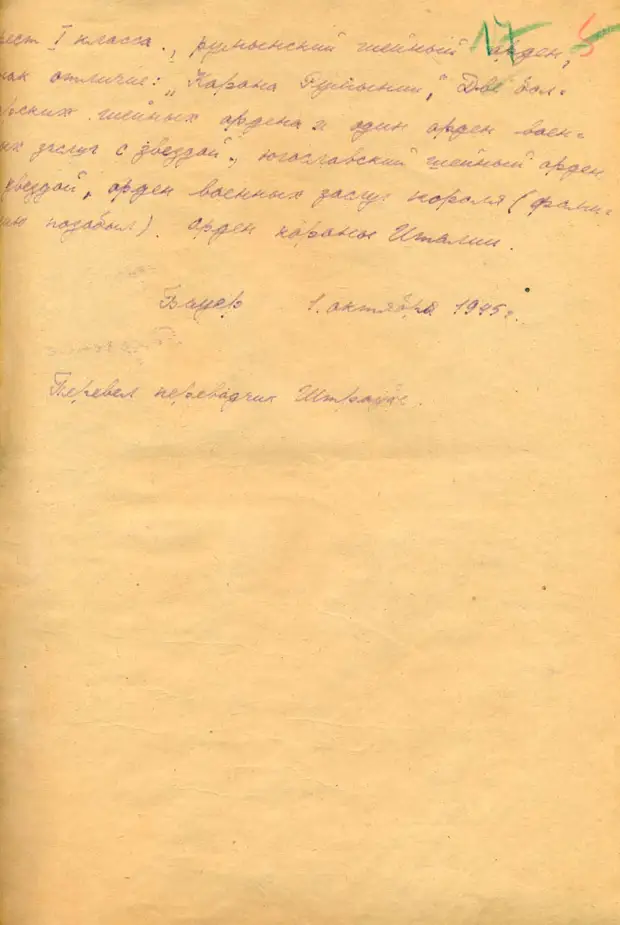 17 5
рест I класса., румынский шейный орден,
нак отличие: „Карона Румынии," Две бол-
рских шейных ордена и один орден воен-
ых заслуг с звездой", югославский шейный орден
звездой", орден военных заслуг короля (фами-
ию позабыл). орден короны Италии.
Бауер 1. октября 1945 г.
Перевел переводчик